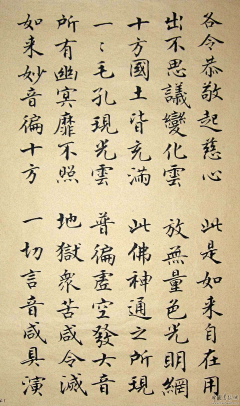 各令恭敬起慈心　此是如来自在用
出不思議變化雲　放無量色光明網
十方國土皆充滿　此佛神通之所現
一〻毛孔現光雲　普徧虛空發大音
所有幽冥靡不照　地獄衆苦咸令滅
如来妙音徧十方　一切言音咸具演